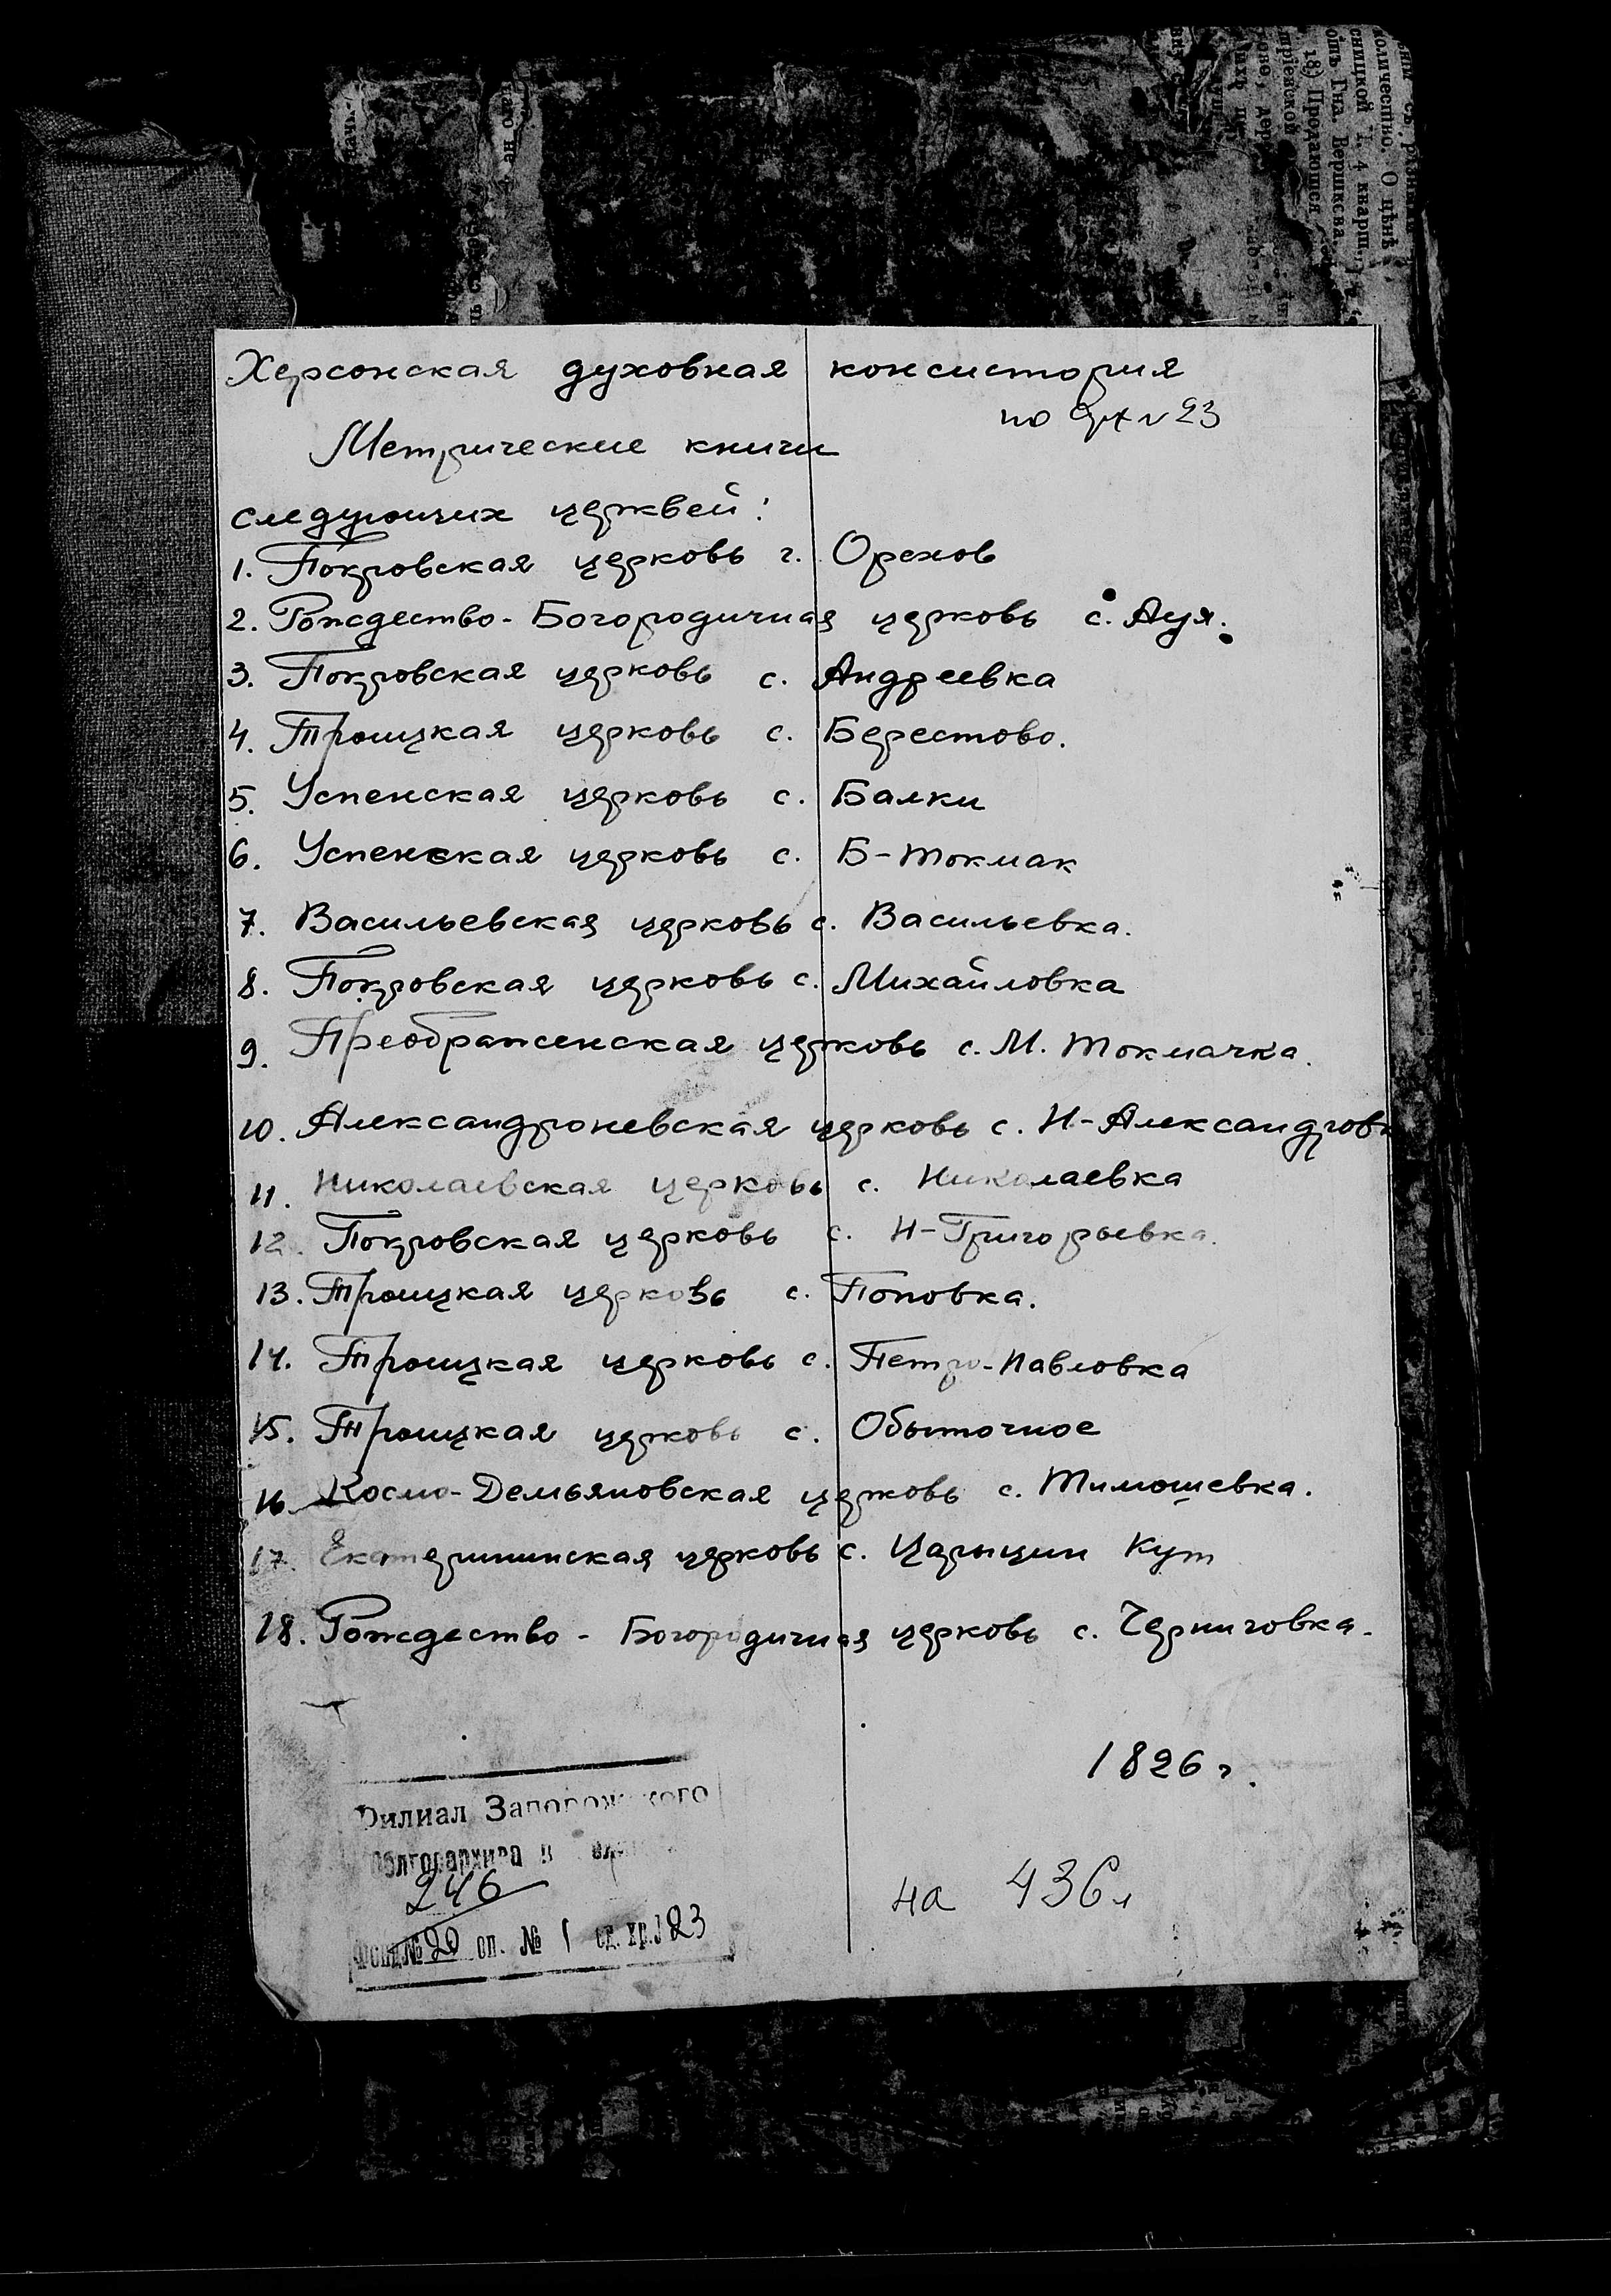 Херсонская духовная консистория
по
Метрические книги
следующих церквей:
1. Покровская церковь г. Орехов
2. Рождество-Богородичная церковь с. Ауя.
3. Покровская церковь с. Андреевка
4. Троицкая церковь с. Берестово.
5. Успенская церковь с. Балки
6. Успенская церковь с. Б-Токмак
7. Васильевская церковь с. Васильевка.
8. Покровская церковь с. Михайловка
9. Преображенская церковь с. М. Токмачка.
10. Александроневская церковь с. Н-Александровк
11. Николаевская церковь с. Николаевка
12. Покровская церковь с. Н-Григорьевка.
13. Троицкая церковь с. Поповка.
14. Троицкая церковь с. Петро-Павловка
15. Троицкая церковь с. Обыточное
16. Космо-Демьяновская церковь с. Тимошевка.
17. Екатерининская церковь с. Царицин Кут
18. Рождество - Богородичная церковь с. Черниговка.
1826 г.
Филиал Запорожского
облгосархива в
246
на 436 л
Фонд № 20 оп. № 1 ед. хр. 123